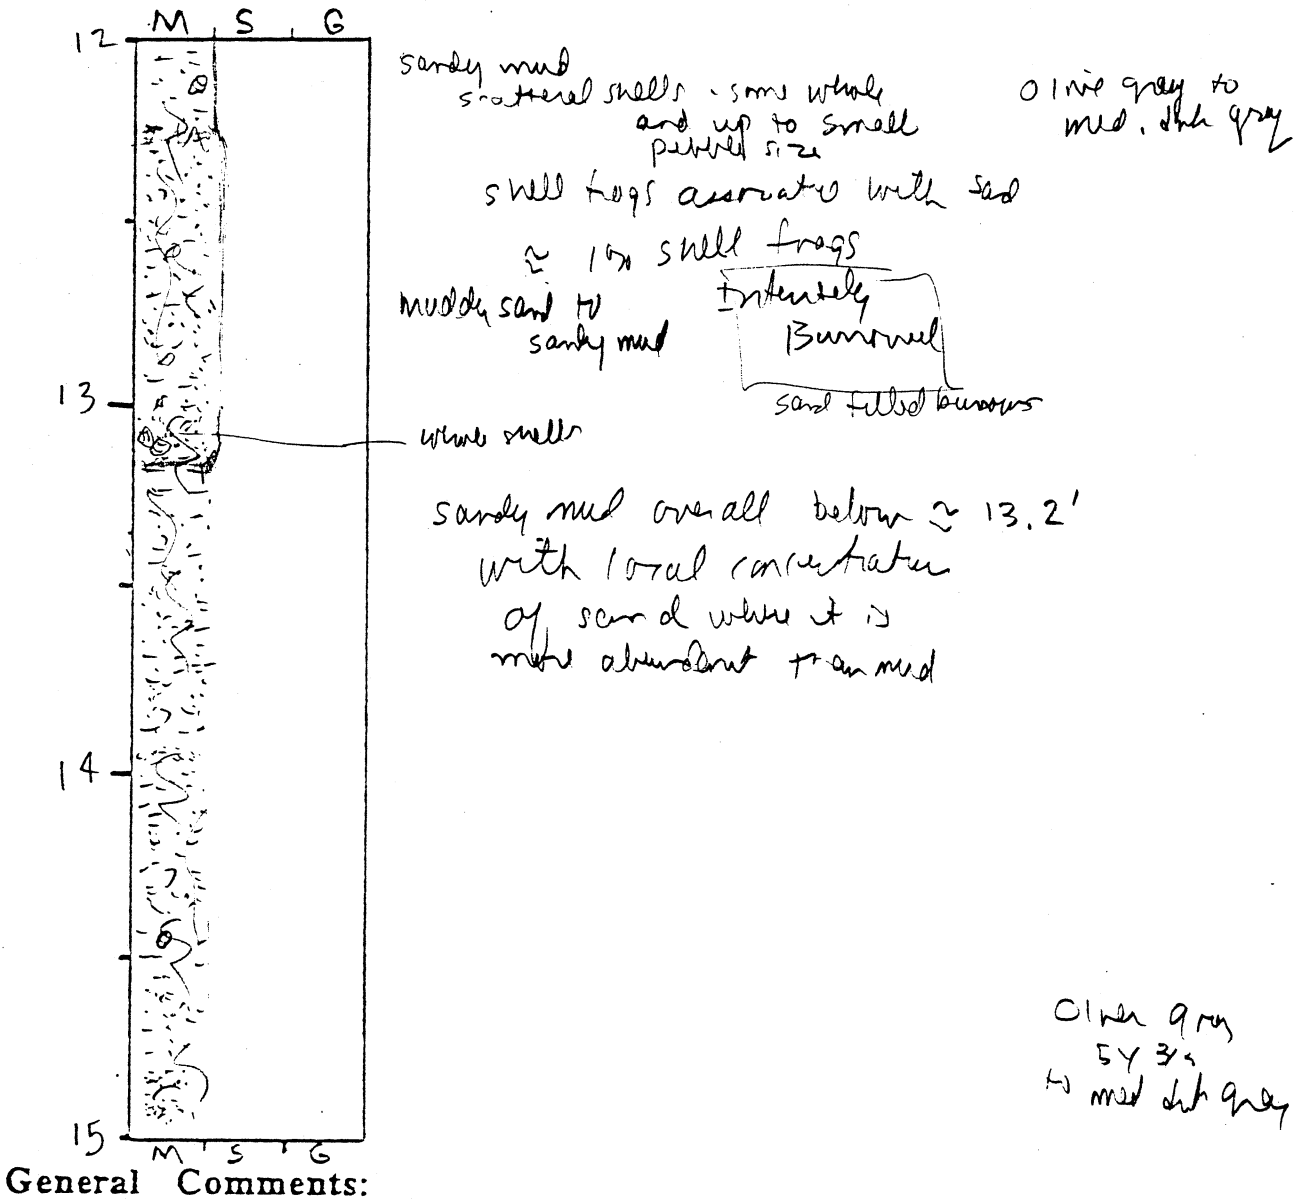 M S G
12
sandy mud
scattered shells - some whole
and up to small
pebble size
Olive gray to
med. drk gray
shell frags associated with sand
≈ 1% shell frags
muddy sand to
sandy mud
Intensely
Burrowed
sand filled burrows
13
whole shells
sandy mud overall below ≈ 13.2'
with local concentration
of sand where it is
more abundant than mud
14
Olive gray
5Y
to med drk gray
15
M S G
General Comments: